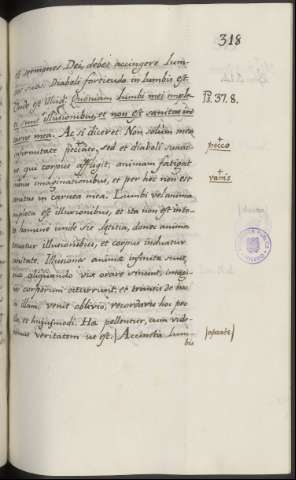 318
et sermones Dei, debet accingere lum-
bos suos. Diaboli fortitudo in lumbis est.
Unde est illud: Quoniam lumbi mei imple-
ti sunt illusionibus, et non est sanitas in
carne mea. Ac si diceret: Non solum mea
infirmitate pecco, sed et diaboli suasio
qui corpus affligit, animam fatigat
imaginationibus, et per hoc non est
sanitas in carnea mea. Lumbi vel anima
impleta est illusionibus, et ita non est in
homine unde sit letitia, donec anima
illusionibus, et corpus induatur
sanitate. Illusiones animae infinita sunt,
aliquando viæ orare veniunt, imagi-
corporum occurrunt, et transis de hac
in illam, venit oblivio, recordaris hoc pro
illo, et hujusmodi. Hæ pelluntur, cum vide-
rimus veritatem ut est. Accinctis lum-
bis
Ps. 37. 8.
pecco
vanis